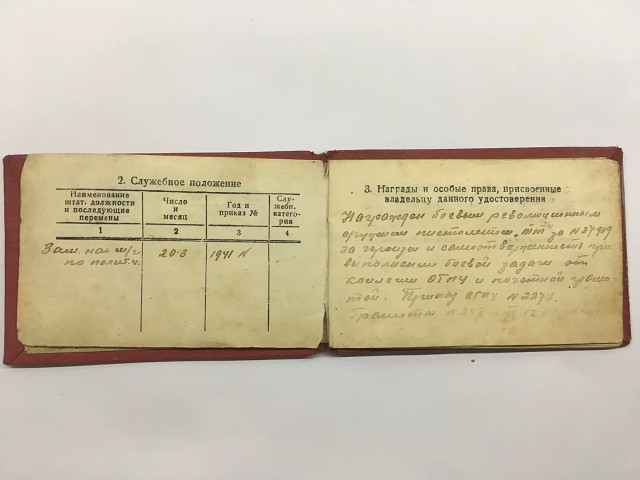 2. Служебное положение
Наименование
штат. должности
и последующие
перемены
Число
и
месяц
Год и
приказ №
Слу-
жебн.
катего-
рия
1
2
3
4
Зам. нач.
по полит.ч.
20-3
1941 N
3. Награды и особые права, присвоенные
владельцу данного удостоверения
Награжден боевым революционным
оружием пистолетом „ТТ" за N
за героизм и самоотверженность при
выполнении боевой задачи от
ОГПУ и почетной грамо-
той. Приказ ОГПУ N
Грамота N